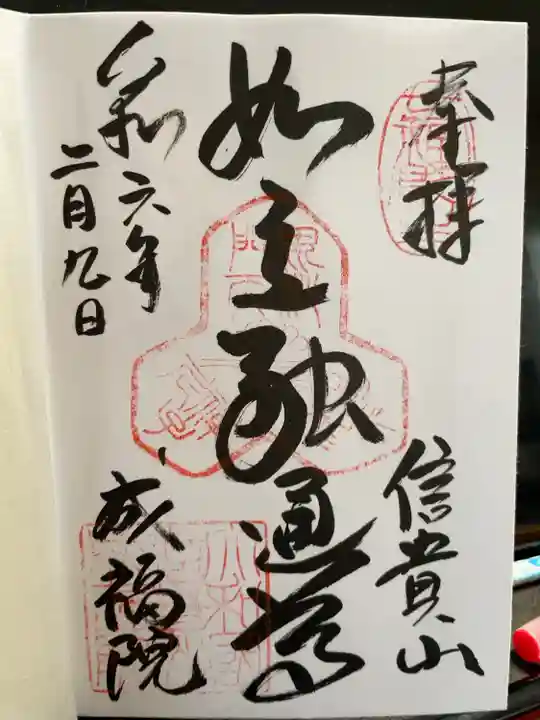 奉拝
信貴山
如意融通尊
令和六年
二月九日
成福院